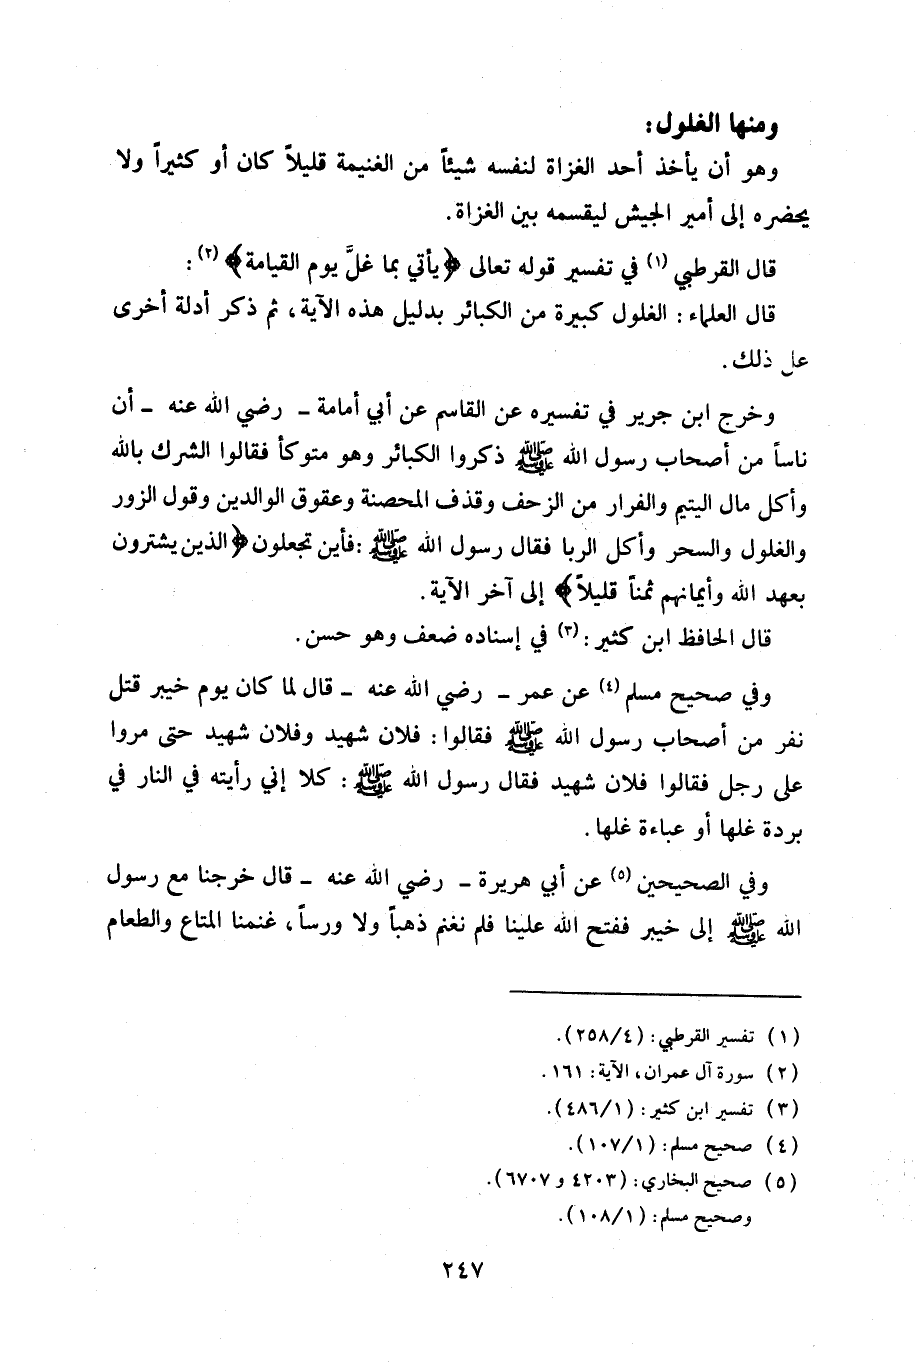 ومنها الغلول:
وهو أن يأخذ أحد الغزاة لنفسه شيئاً من الغنيمة قليلاً كان أو كثيراً ولا
يحضره إلى أمير الجيش ليقسمه بين الغزاة.
قال القرطبي (١) في تفسير قوله تعالى ﴿يأتي بما غلَّ يوم القيامة﴾ (٢) :
قال العلماء : الغلول كبيرة من الكبائر بدليل هذه الآية، ثم ذكر أدلة أخرى
على ذلك.
وخرج ابن جرير في تفسيره عن القاسم عن أبي أمامة ـ رضي الله عنه ـ أن
ناساً من أصحاب رسول الله ﷺ ذكروا الكبائر وهو متوكأ فقالوا الشرك بالله
وأكل مال اليتيم والفرار من الزحف وقذف المحصنة وعقوق الوالدين وقول الزور
والغلول والسحر وأكل الربا فقال رسول الله ﷺ :فأين تجعلون ﴿الذين يشترون
بعهد الله وأيمانهم ثمناً قليلاً﴾ إلى آخر الآية.
قال الحافظ ابن كثير : (٣) في إسناده ضعف وهو حسن.
وفي صحيح مسلم (٤) عن عمر ـ رضي الله عنه ـ قال لما كان يوم خيبر قتل
نفر من أصحاب رسول الله ﷺ فقالوا : فلان شهيد وفلان شهيد حتى مروا
على رجل فقالوا فلان شهيد فقال رسول الله ﷺ : كلا إني رأيته في النار في
بردة غلها أو عباءة غلها.
وفي الصحيحين (٥) عن أبي هريرة ـ رضي الله عنه ـ قال خرجنا مع رسول
الله ﷺ إلى خيبر ففتح الله علينا فلم نغنم ذهباً ولا ورساً، غنمنا المتاع والطعام
(١) تفسير القرطبي : (٢٥٨/٤).
(٢) سورة آل عمران، الآية : ١٦١.
(٣) تفسير ابن كثير : (٤٨٦/١).
(٤) صحيح مسلم : (١٠٧/١).
(٥) صحيح البخاري : (٤٢٠٣ و ٦٧٠٧).
وصحيح مسلم : (١٠٨/١).
٢٤٧